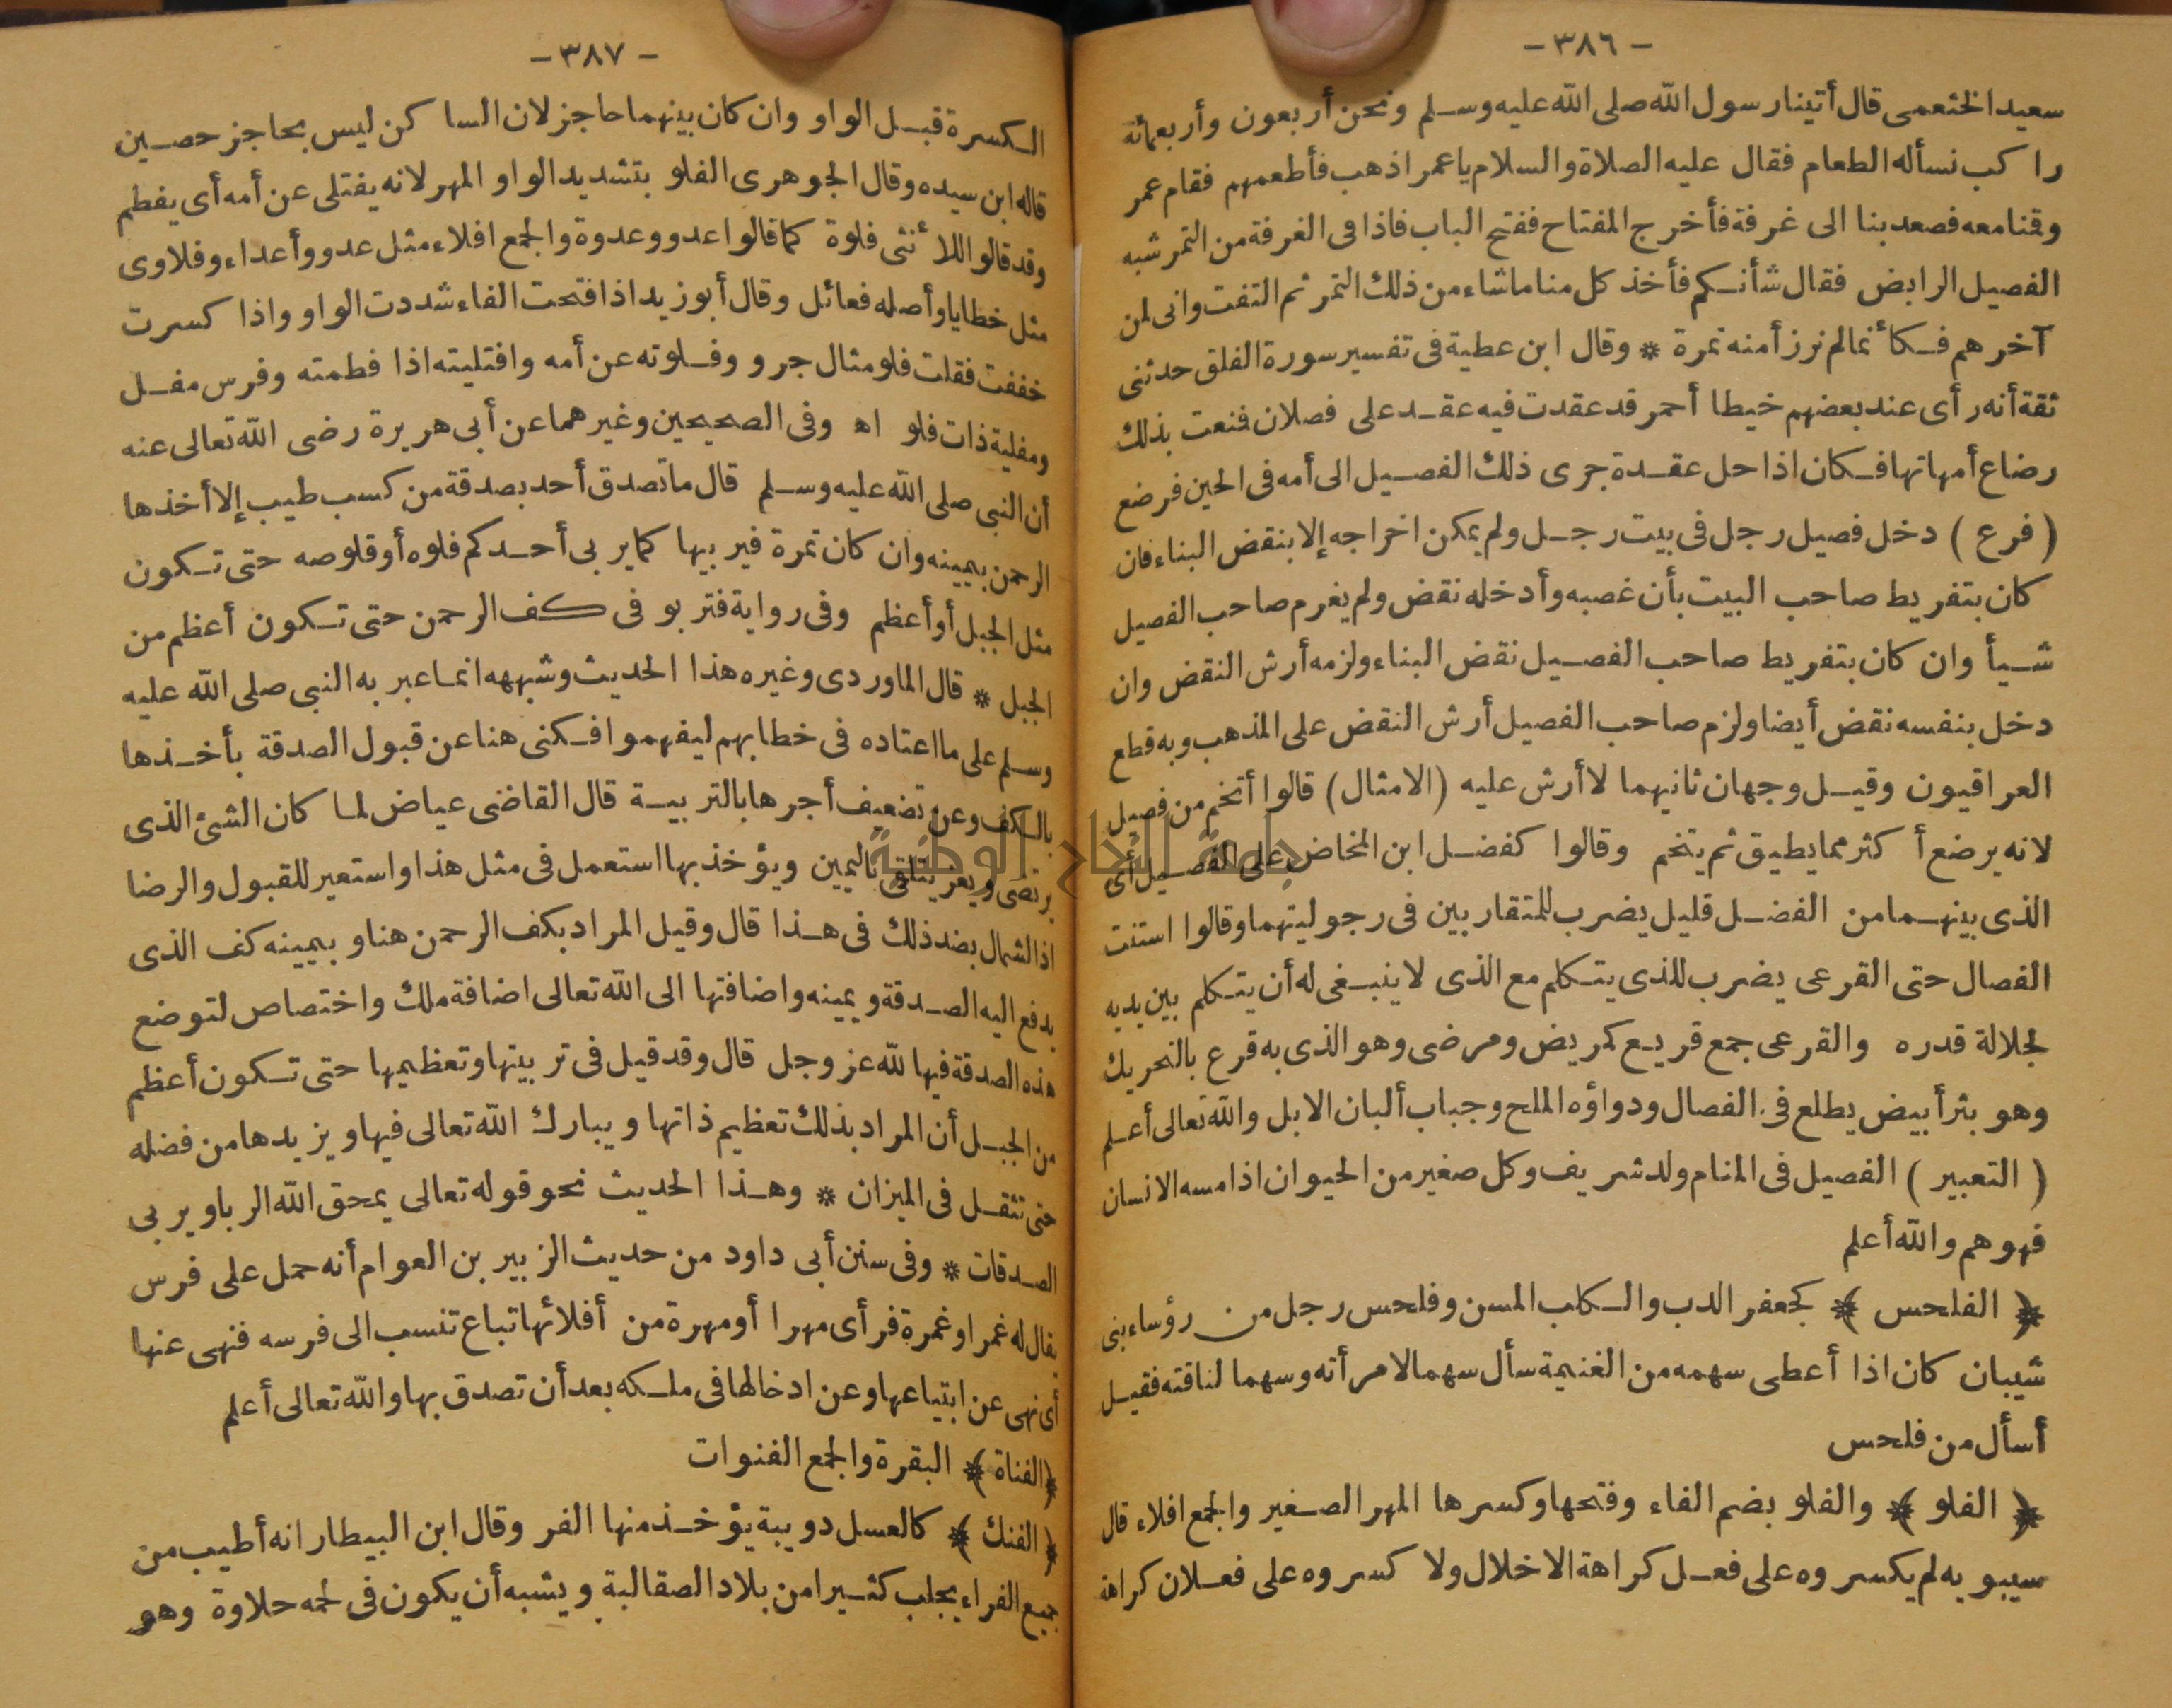 – ٣٨٦ –
سعيد الخثعمى قال أتينا رسول الله صلى الله عليه وسلم ونحن أربعون وأربعمائة
راكب نسأله الطعام فقال عليه الصلاة والسلام ياعمر اذهب فأطعمهم فقام عمر
وقنا معه فصعد بنا الى غرفة فأخرج المفتاح ففتح الباب فاذا فى الغرفة من التمر شبه
الفصيل الرابض فقال شأنكم فأخذ كل منا ماشاء من ذلك التمر ثم التفت وانى لمن
آخرهم فكأنما لم نرزأ منه تمرة * وقال ابن عطية فى تفسير سورة الفلق حدثنى
ثقة أنه رأى عند بعضهم خيطا أحمر قد عقدت فيه عقد على فصلان فمنعت بذلك
رضاع أمهاتها فكان اذا حل عقدة جرى ذلك الفصيل الى أمه فى الحين فرضع
(فرع) دخل فصيل رجل فى بيت رجل ولم يمكن اخراجه إلا بنقض البناء فان
كان بتفريط صاحب البيت بأن غصبه وأدخله نقض ولم يغرم صاحب الفصيل
شيأ وان كان بتفريط صاحب الفصيل نقض البناء ولزمه أرش النقض وان
دخل بنفسه نقض أيضا ولزم صاحب الفصيل أرش النقض على المذهب وبه قطع
العراقيون وقيل وجهان ثانيهما لا أرش عليه (الامثال) قالوا أتخم من فصيل
لانه يرضع أكثر مما يطيق ثم يتخم وقالوا كفضل ابن المخاض على الفصيل أى
الذى بينهما من الفضل قليل يضرب للمتقاربين فى رجوليتهما وقالوا استنت
الفصال حتى القرعى يضرب للذى يتكلم مع الذى لا ينبغى له أن يتكلم بين يديه
لجلالة قدره والقرعى جمع قريع كمريض ومرضى وهو الذى به قرع بالتحريك
وهو بثر أبيض يطلع فى الفصال ودواؤه الملح وجباب ألبان الابل والله تعالى أعلم
(التعبير) الفصيل فى المنام ولد شريف وكل صغير من الحيوان اذا مسه الانسان
فهو هم والله أعلم
﴿الفلحس﴾ كجعفر الدب والكلب المسن وفلحس رجل من رؤساء بنى
شيبان كان اذا أعطى سهمه من الغنيمة سأل سهما لامرأته وسهما لناقته فقيل
أسأل من فلحس
﴿الفلو﴾ والفلو بضم الفاء وفتحها وكسرها المهر الصغير والجمع افلاء قال
سيبويه لم يكسروه على فعل كراهة الاخلال ولا كسروه على فعلان كراهة
– ٣٨٧ –
الكسرة قبل الواو وان كان بينهما حاجز لان الساكن ليس بحاجز حصين
قاله ابن سيده وقال الجوهرى الفلو بتشديد الواو المهر لانه يفتلى عن أمه أى يفطم
وقد قالوا للأنثى فلوة كما قالوا عدو وعدوة والجمع افلاء مثل عدو وأعداء وفلاوى
مثل خطايا وأصله فعائل وقال أبو زيد اذا فتحت الفاء شددت الواو واذا كسرت
خففت فقلت فلو مثال جرو وفلوته عن أمه وافتليته اذا فطمته وفرس مفل
ومفلية ذات فلو اه وفى الصحيحين وغيرهما عن أبى هريرة رضى الله تعالى عنه
أن النبى صلى الله عليه وسلم قال ما تصدق أحد بصدقة من كسب طيب إلا أخذها
الرحمن بيمينه وان كان تمرة فيربيها كما يربى أحدكم فلوه أو قلوصه حتى تكون
مثل الجبل أو أعظم وفى رواية فتربو فى كف الرحمن حتى تكون أعظم من
الجبل * قال الماوردى وغيره هذا الحديث وشبهه انما عبر به النبى صلى الله عليه
وسلم على ما اعتاده فى خطابهم ليفهموا فكنى هنا عن قبول الصدقة بأخذها
بالكف وعن تضعيف أجرها بالتربية قال القاضى عياض لما كان الشئ الذى
يرتضى ويعز يتلقى باليمين ويؤخذ بها استعمل فى مثل هذا واستعير للقبول والرضا
اذ الشمال بضد ذلك فى هذا قال وقيل المراد بكف الرحمن هنا وبيمينه كف الذى
يدفع اليه الصدقة ويمينه واضافتها الى الله تعالى اضافة ملك واختصاص لتوضع
هذه الصدقة فيها لله عز وجل قال وقد قيل فى تربيتها وتعظيمها حتى تكون أعظم
من الجبل أن المراد بذلك تعظيم ذاتها ويبارك الله تعالى فيها ويزيدها من فضله
حتى تثقل فى الميزان * وهذا الحديث نحو قوله تعالى يمحق الله الربا ويربى
الصدقات * وفى سنن أبى داود من حديث الزبير بن العوام أنه حمل على فرس
يقال له غمر او غمرة فرأى مهرا أو مهرة من أفلائها تباع تنسب الى فرسه فنهى عنها
أى نهى عن ابتياعها وعن ادخالها فى ملكه بعد أن تصدق بها والله تعالى أعلم
﴿الفناة﴾ البقرة والجمع الفنوات
﴿الفنك﴾ كالعسل دويبة يؤخذ منها الفرو وقال ابن البيطار انه أطيب من
جميع الفراء يجلب كثيرا من بلاد الصقالبة ويشبه أن يكون فى لحمه حلاوة وهو
جامعة النجاح الوطنية